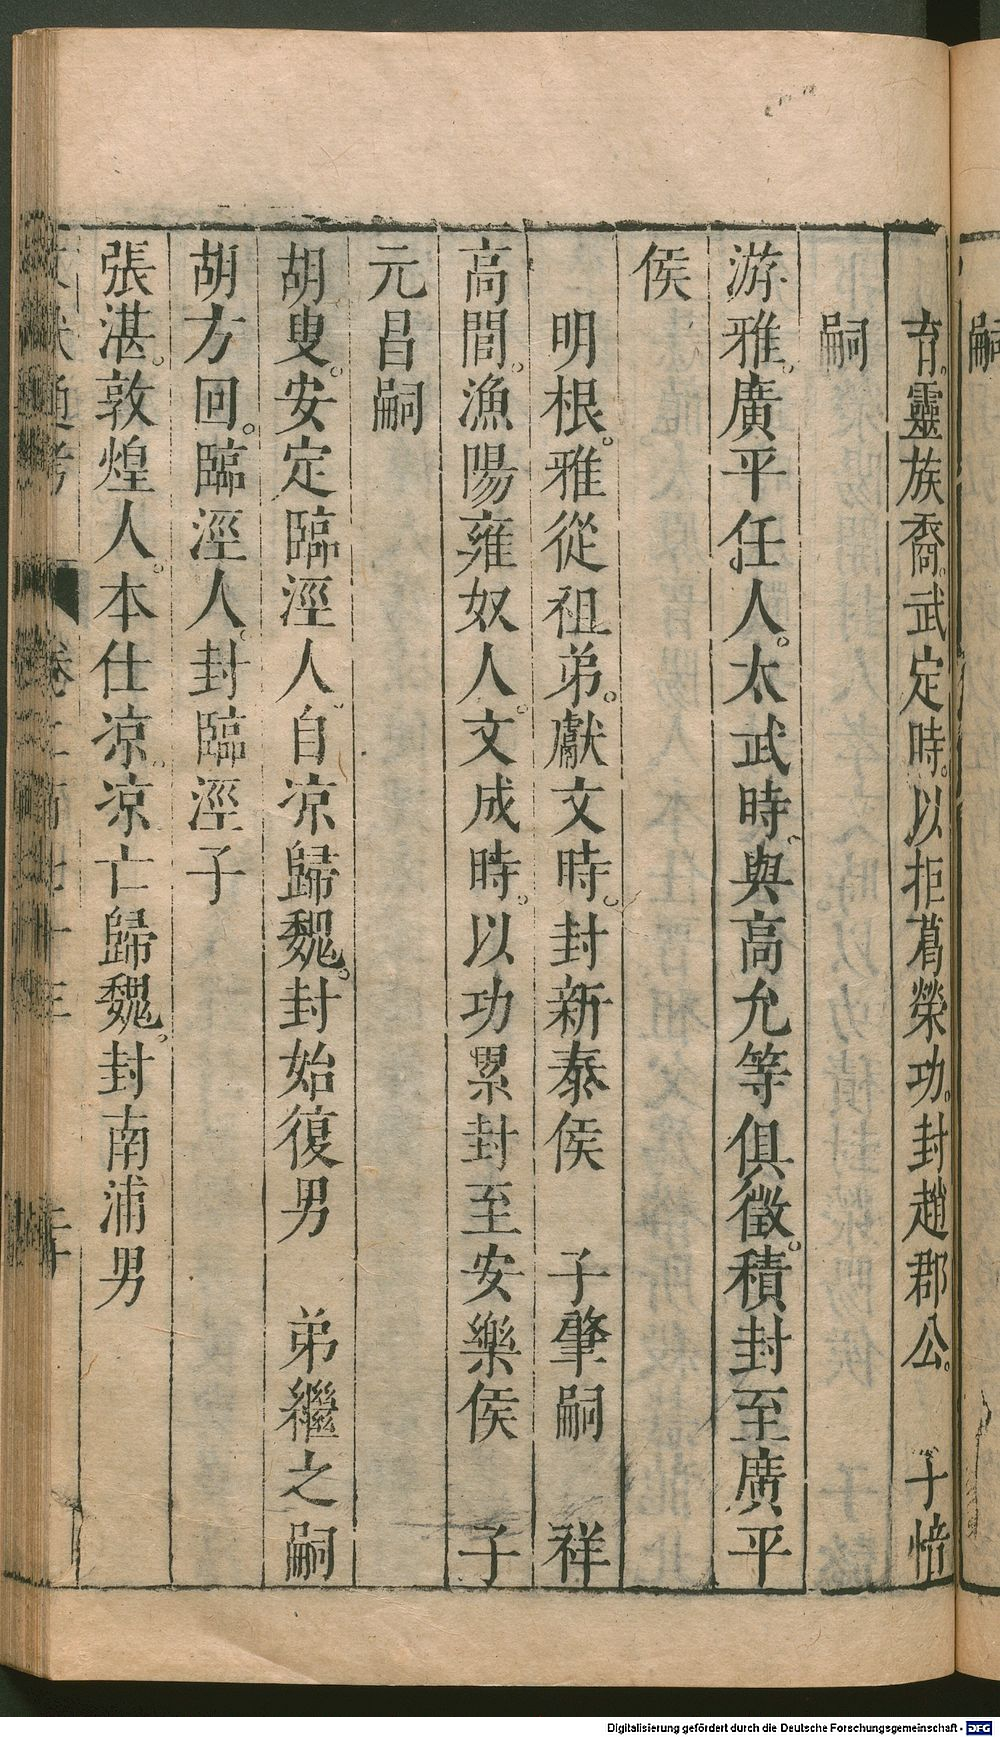 嗣
育。靈族裔。武定時。以拒葛榮功。封趙郡公。　子愔
嗣
游雅。廣平任人。太武時。與高允等俱徵。積封至廣平
侯
明根。雅從祖弟。獻文時。封新泰侯　子肇嗣　祥
高閭。漁陽雍奴人。文成時。以功累封至安樂侯　子
元昌嗣
胡叟。安定臨涇人。自凉歸魏。封始復男　弟繼之嗣
胡方回。臨涇人。封臨涇子
張湛。敦煌人。本仕凉。凉亡歸魏。封南浦男
Digitalisierung gefördert durch die Deutsche Forschungsgemeinschaft - DFG